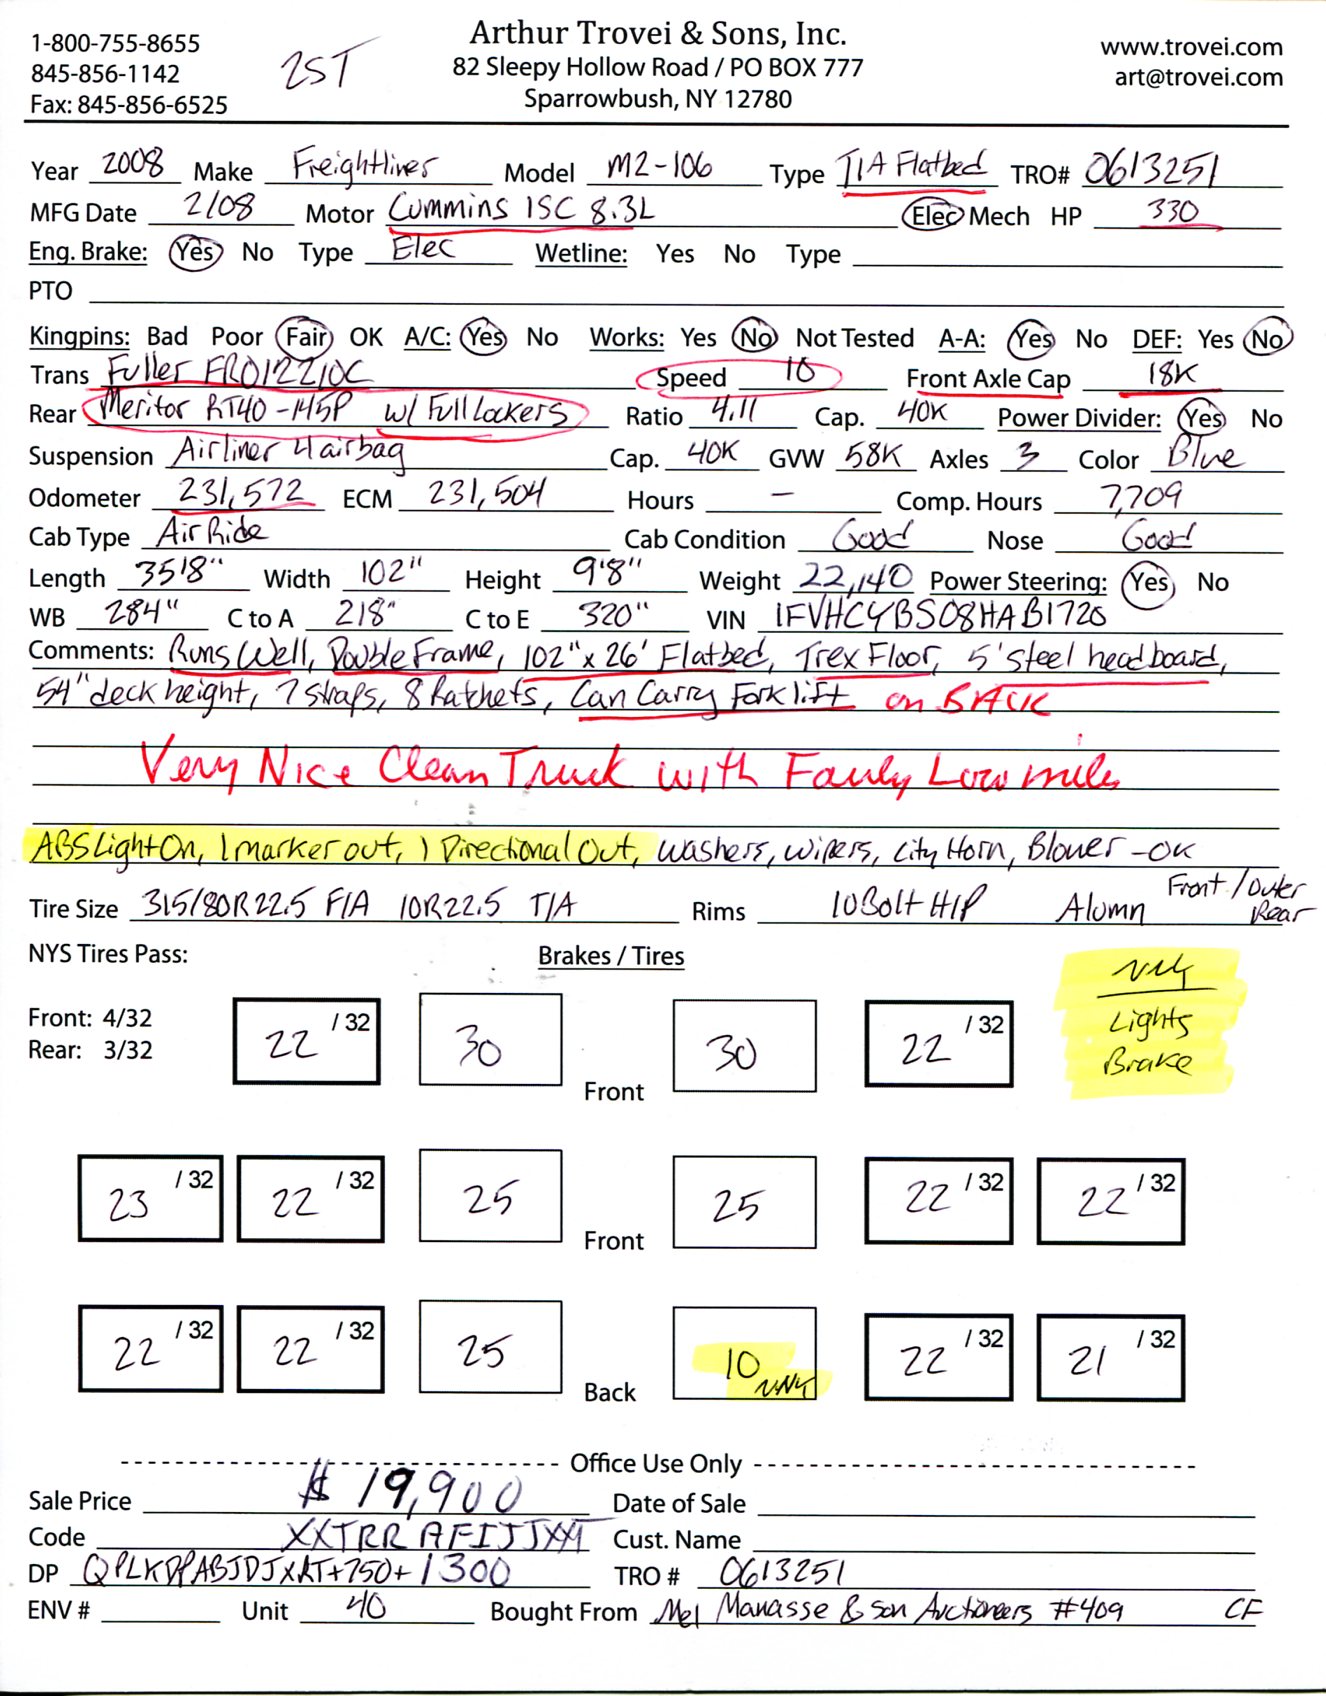 Arthur Trovei & Sons, Inc.
1-800-755-8655
845-856-1142
Fax: 845-856-6525
2ST
82 Sleepy Hollow Road / PO BOX 777
Sparrowbush, NY 12780
www.trovei.com
art@trovei.com
Year 2008 Make Freightliner Model M2-106 Type T/A Flatbed TRO# 0613251
MFG Date 2/08 Motor Cummins ISC 8.3L Elec Mech HP 330
Eng. Brake: Yes No Type Elec Wetline: Yes No Type
PTO
Kingpins: Bad Poor Fair OK A/C: Yes No Works: Yes No Not Tested A-A: Yes No DEF: Yes No
Trans Fuller FRO12210C Speed 10 Front Axle Cap 18K
Rear Meritor RT40-145P w/ Full Lockers Ratio 4.11 Cap. 40K Power Divider: Yes No
Suspension Airliner 4 airbag Cap. 40K GVW 58K Axles 3 Color Blue
Odometer 231,572 ECM 231,504 Hours — Comp. Hours 7,709
Cab Type Air Ride Cab Condition Good Nose Good
Length 35'8" Width 102" Height 9'8" Weight 22,140 Power Steering: Yes No
WB 284" C to A 218" C to E 320" VIN 1FVHCYBS08HAB1720
Comments: Runs Well, Double Frame, 102" x 26' Flatbed, Trex Floor, 5' steel headboard,
54" deck height, 7 straps, 8 Ratchets, Can Carry Forklift on BACK
Very Nice Clean Truck with Fairly Low miles
ABS Light On, 1 marker out, 1 Directional Out, washers, wipers, City Horn, Blower - OK
Tire Size 315/80R22.5 F/A 10R22.5 T/A Rims 10 Bolt H/P Alumn Front / Outer Rear
NYS Tires Pass: Brakes / Tires
Front: 4/32
Rear: 3/32
22 /32 30 Front 30 22 /32
Lights
Brake
23 /32 22 /32 25 Front 25 22 /32 22 /32
22 /32 22 /32 25 Back 10 22 /32 21 /32
Office Use Only
Sale Price $ 19,900 Date of Sale
Code XXTRRAFIJJXXT Cust. Name
DP QPLKDPABJDJXRT+750+1300 TRO # 0613251
ENV # Unit 40 Bought From Mel Manasse & Son Auctioneers #409 CF